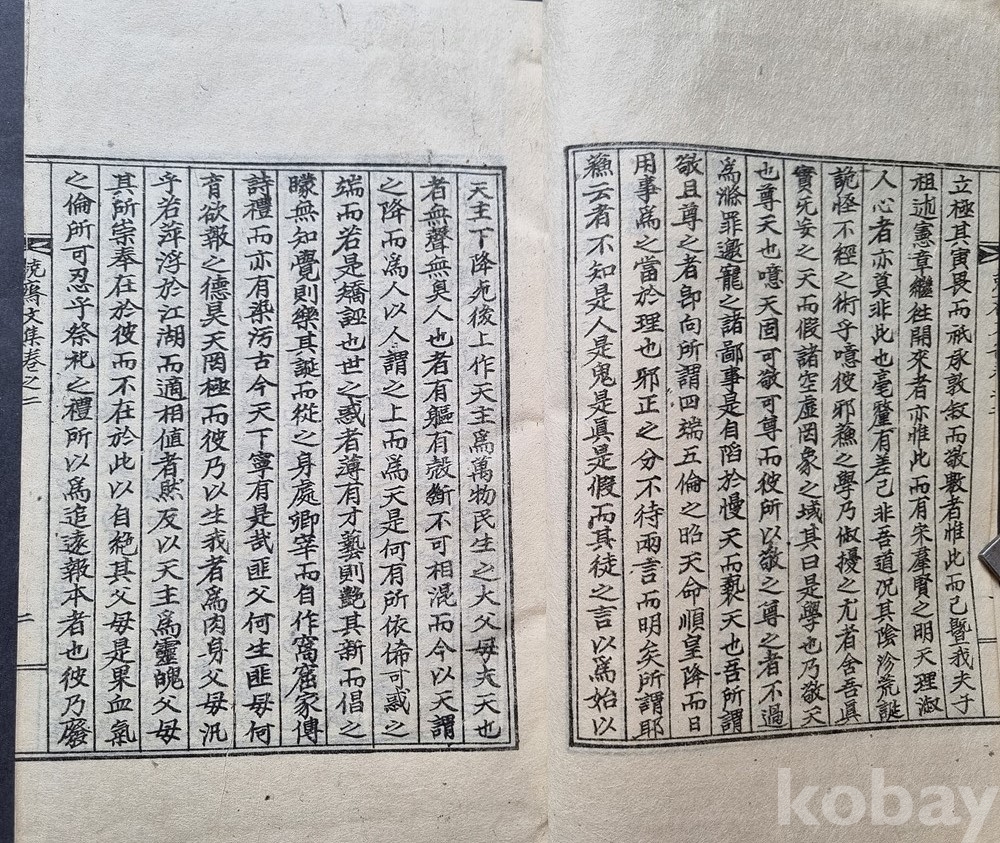 立極其寅畏而祇承敦敍而敬敷者惟此而已曁我夫子
祖述憲章繼徃開來者亦惟此而有宋羣賢之明天理淑
人心者亦莫非此也毫釐有差己非吾道况其陰沴荒誕
詭怪不經之術乎噫彼邪蘓之學乃俶擾之尤者舍吾眞
實旡妄之天而假諸空虛罔象之域其曰是學也乃敬天
也尊天也噫天固可敬可尊而彼所以敬之尊之者不過
爲滌罪邀寵之諸鄙事是自陷於慢天而褻天也吾所謂
敬且尊之者卽向所謂四端五倫之昭天命順皇降而日
用事爲之當於理也邪正之分不待兩言而明矣所謂耶
蘓云者不知是人是鬼是眞是假而其徒之言以爲始以
天主下降死後上作天主爲萬物民生之大父母夫天也
者無聲無臭人也者有軀有殼斷不可相混而今以天謂
之降而爲人以人謂之上而爲天是何有所依俙可惑之
端而若是矯誣也世之惑者薄有才藝則艶其新而倡之
矇無知覺則樂其誕而從之身處卿宰而自作窩窟家傳
詩禮而亦有染汚古今天下寧有是哉匪父何生匪母何
育欲報之德昊天罔極而彼乃以生我者爲肉身父母汎
乎若萍浮於江湖而適相値者然反以天主爲靈魄父母
其所崇奉在於彼而不在於此以自絶其父母是果血氣
之倫所可忍乎祭祀之禮所以爲追遠報本者也彼乃廢
齋文集卷之二
二
kobay